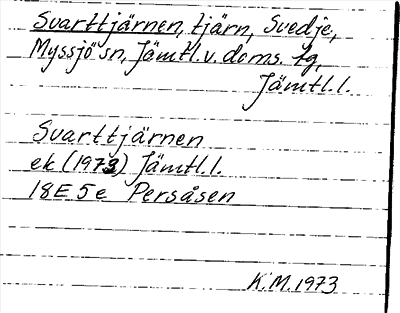 Svarttjärnen, tjärn, Svedje,
Myssjö sn, Jämtl.v. doms. tg,
Jämtl.l.
Svarttjärnen
ek (1973) Jämtl.l.
18E 5e Persåsen
K.M. 1973